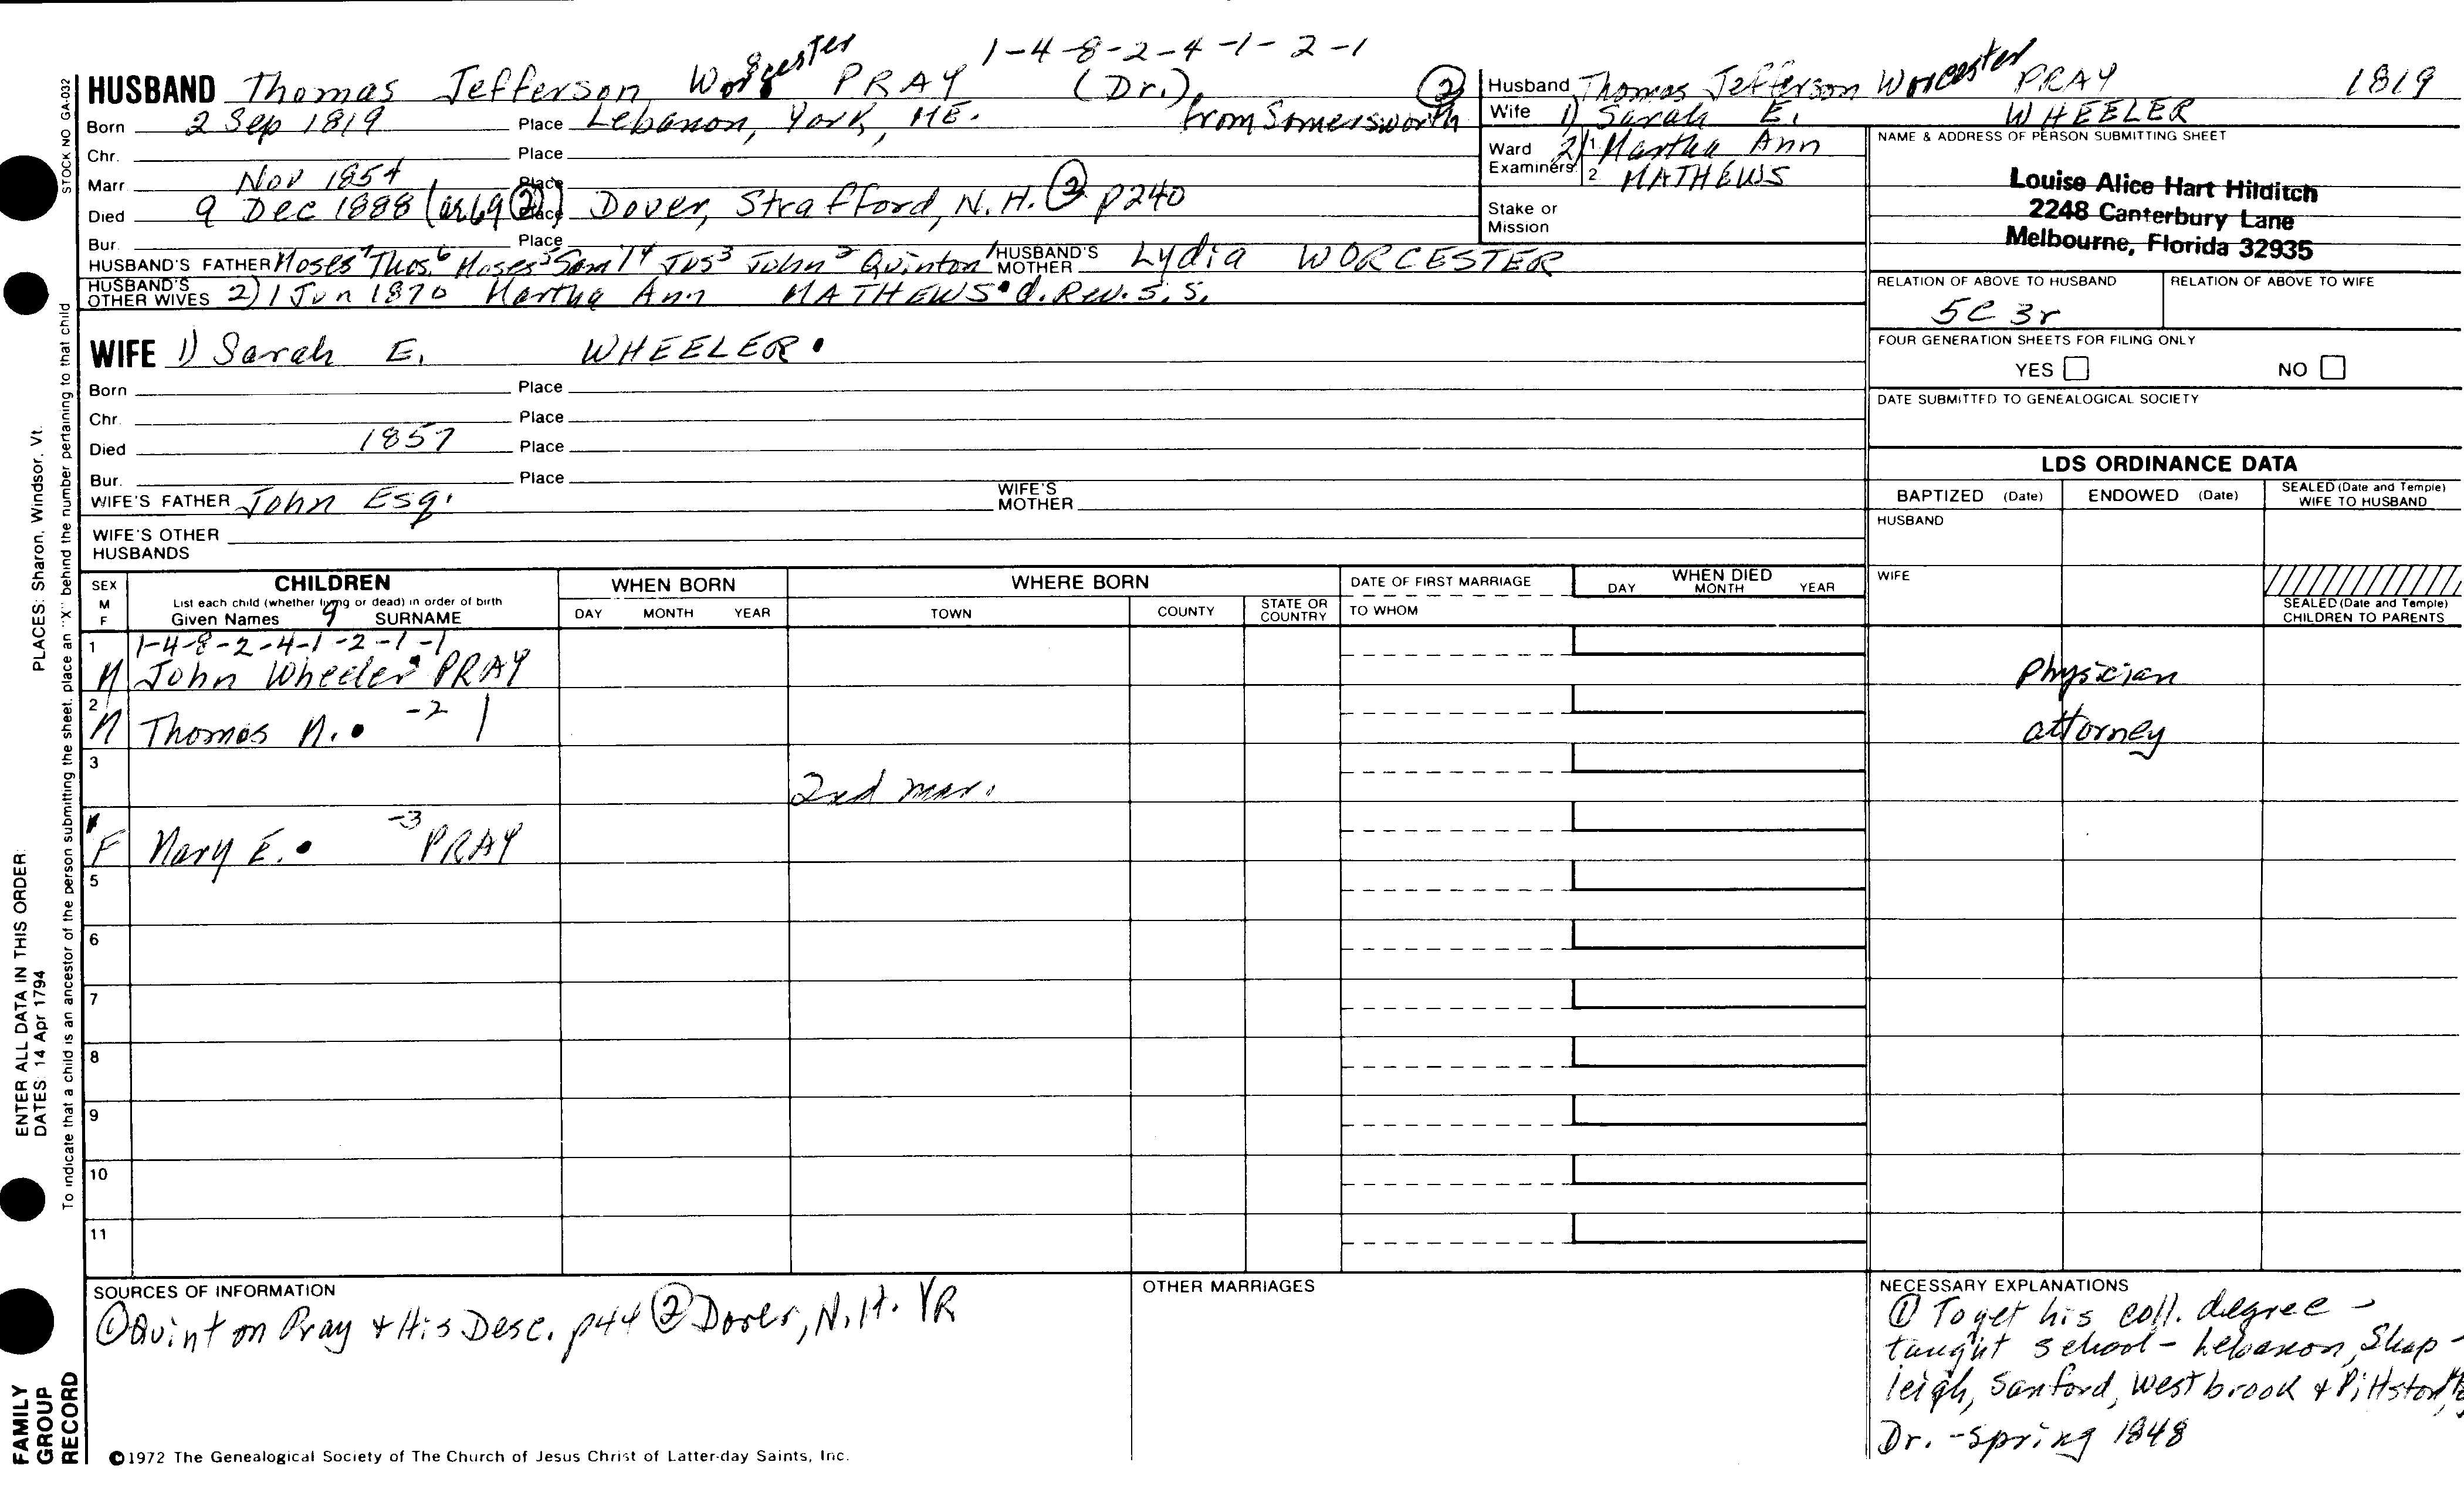 1-4-8-2-4-1-2-1
HUSBAND Thomas Jefferson Worcester PRAY (Dr.)
Born 2 Sep 1819 Place Lebanon, York, ME. from Somersworth ②
Chr. Place
Marr. Nov 1854 Place
Died 9 Dec 1888 (or 69 ②) Place Dover, Strafford, N.H. ② p240
Bur. Place
HUSBAND'S FATHER Moses⁷ Thos.⁶ Moses⁵ Sam'l⁴ Jos³ John² Quinton¹ HUSBAND'S MOTHER Lydia WORCESTER
HUSBAND'S OTHER WIVES 2) 1 Jun 1870 Martha Ann MATHEWS • d. Rev. S. S.
WIFE 1) Sarah E. WHEELER •
Born Place
Chr. Place
Died 1857 Place
Bur. Place
WIFE'S FATHER John Esq. WIFE'S MOTHER
WIFE'S OTHER HUSBANDS
Husband Thomas Jefferson Worcester PRAY 1819
Wife 1) Sarah E. WHEELER
Ward 1. 2) Martha Ann
Examiners: 2 MATHEWS
Stake or Mission
NAME & ADDRESS OF PERSON SUBMITTING SHEET
Louise Alice Hart Hilditch
2248 Canterbury Lane
Melbourne, Florida 32935
RELATION OF ABOVE TO HUSBAND RELATION OF ABOVE TO WIFE
5C 3r
FOUR GENERATION SHEETS FOR FILING ONLY
YES NO
DATE SUBMITTED TO GENEALOGICAL SOCIETY
LDS ORDINANCE DATA
BAPTIZED (Date) ENDOWED (Date) SEALED (Date and Temple) WIFE TO HUSBAND
HUSBAND
WIFE
SEALED (Date and Temple) CHILDREN TO PARENTS
SEX M F
CHILDREN
List each child (whether living or dead) in order of birth
Given Names 9 SURNAME
WHEN BORN
DAY MONTH YEAR
WHERE BORN
TOWN COUNTY STATE OR COUNTRY
DATE OF FIRST MARRIAGE
TO WHOM
WHEN DIED
DAY MONTH YEAR
1 1-4-8-2-4-1-2-1-1
M John Wheeler • PRAY physician
2 M Thomas M. • -2 attorney
3 2nd mar.
F Mary E. • -3 PRAY
5
6
7
8
9
10
11
SOURCES OF INFORMATION
① Quinton Pray + His Desc. p44 ② Dover, N.H. VR
OTHER MARRIAGES
NECESSARY EXPLANATIONS
① To get his coll. degree -
taught school - Lebanon, Shap-
leigh, Sanford, Westbrook + Pittston,
Dr. - Spring 1848
©1972 The Genealogical Society of The Church of Jesus Christ of Latter-day Saints, Inc.
STOCK NO GA-032
To indicate that a child is an ancestor of the person submitting the sheet, place an "X" behind the number pertaining to that child
PLACES: Sharon, Windsor, Vt.
ENTER ALL DATA IN THIS ORDER:
DATES: 14 Apr 1794
FAMILY
GROUP
RECORD